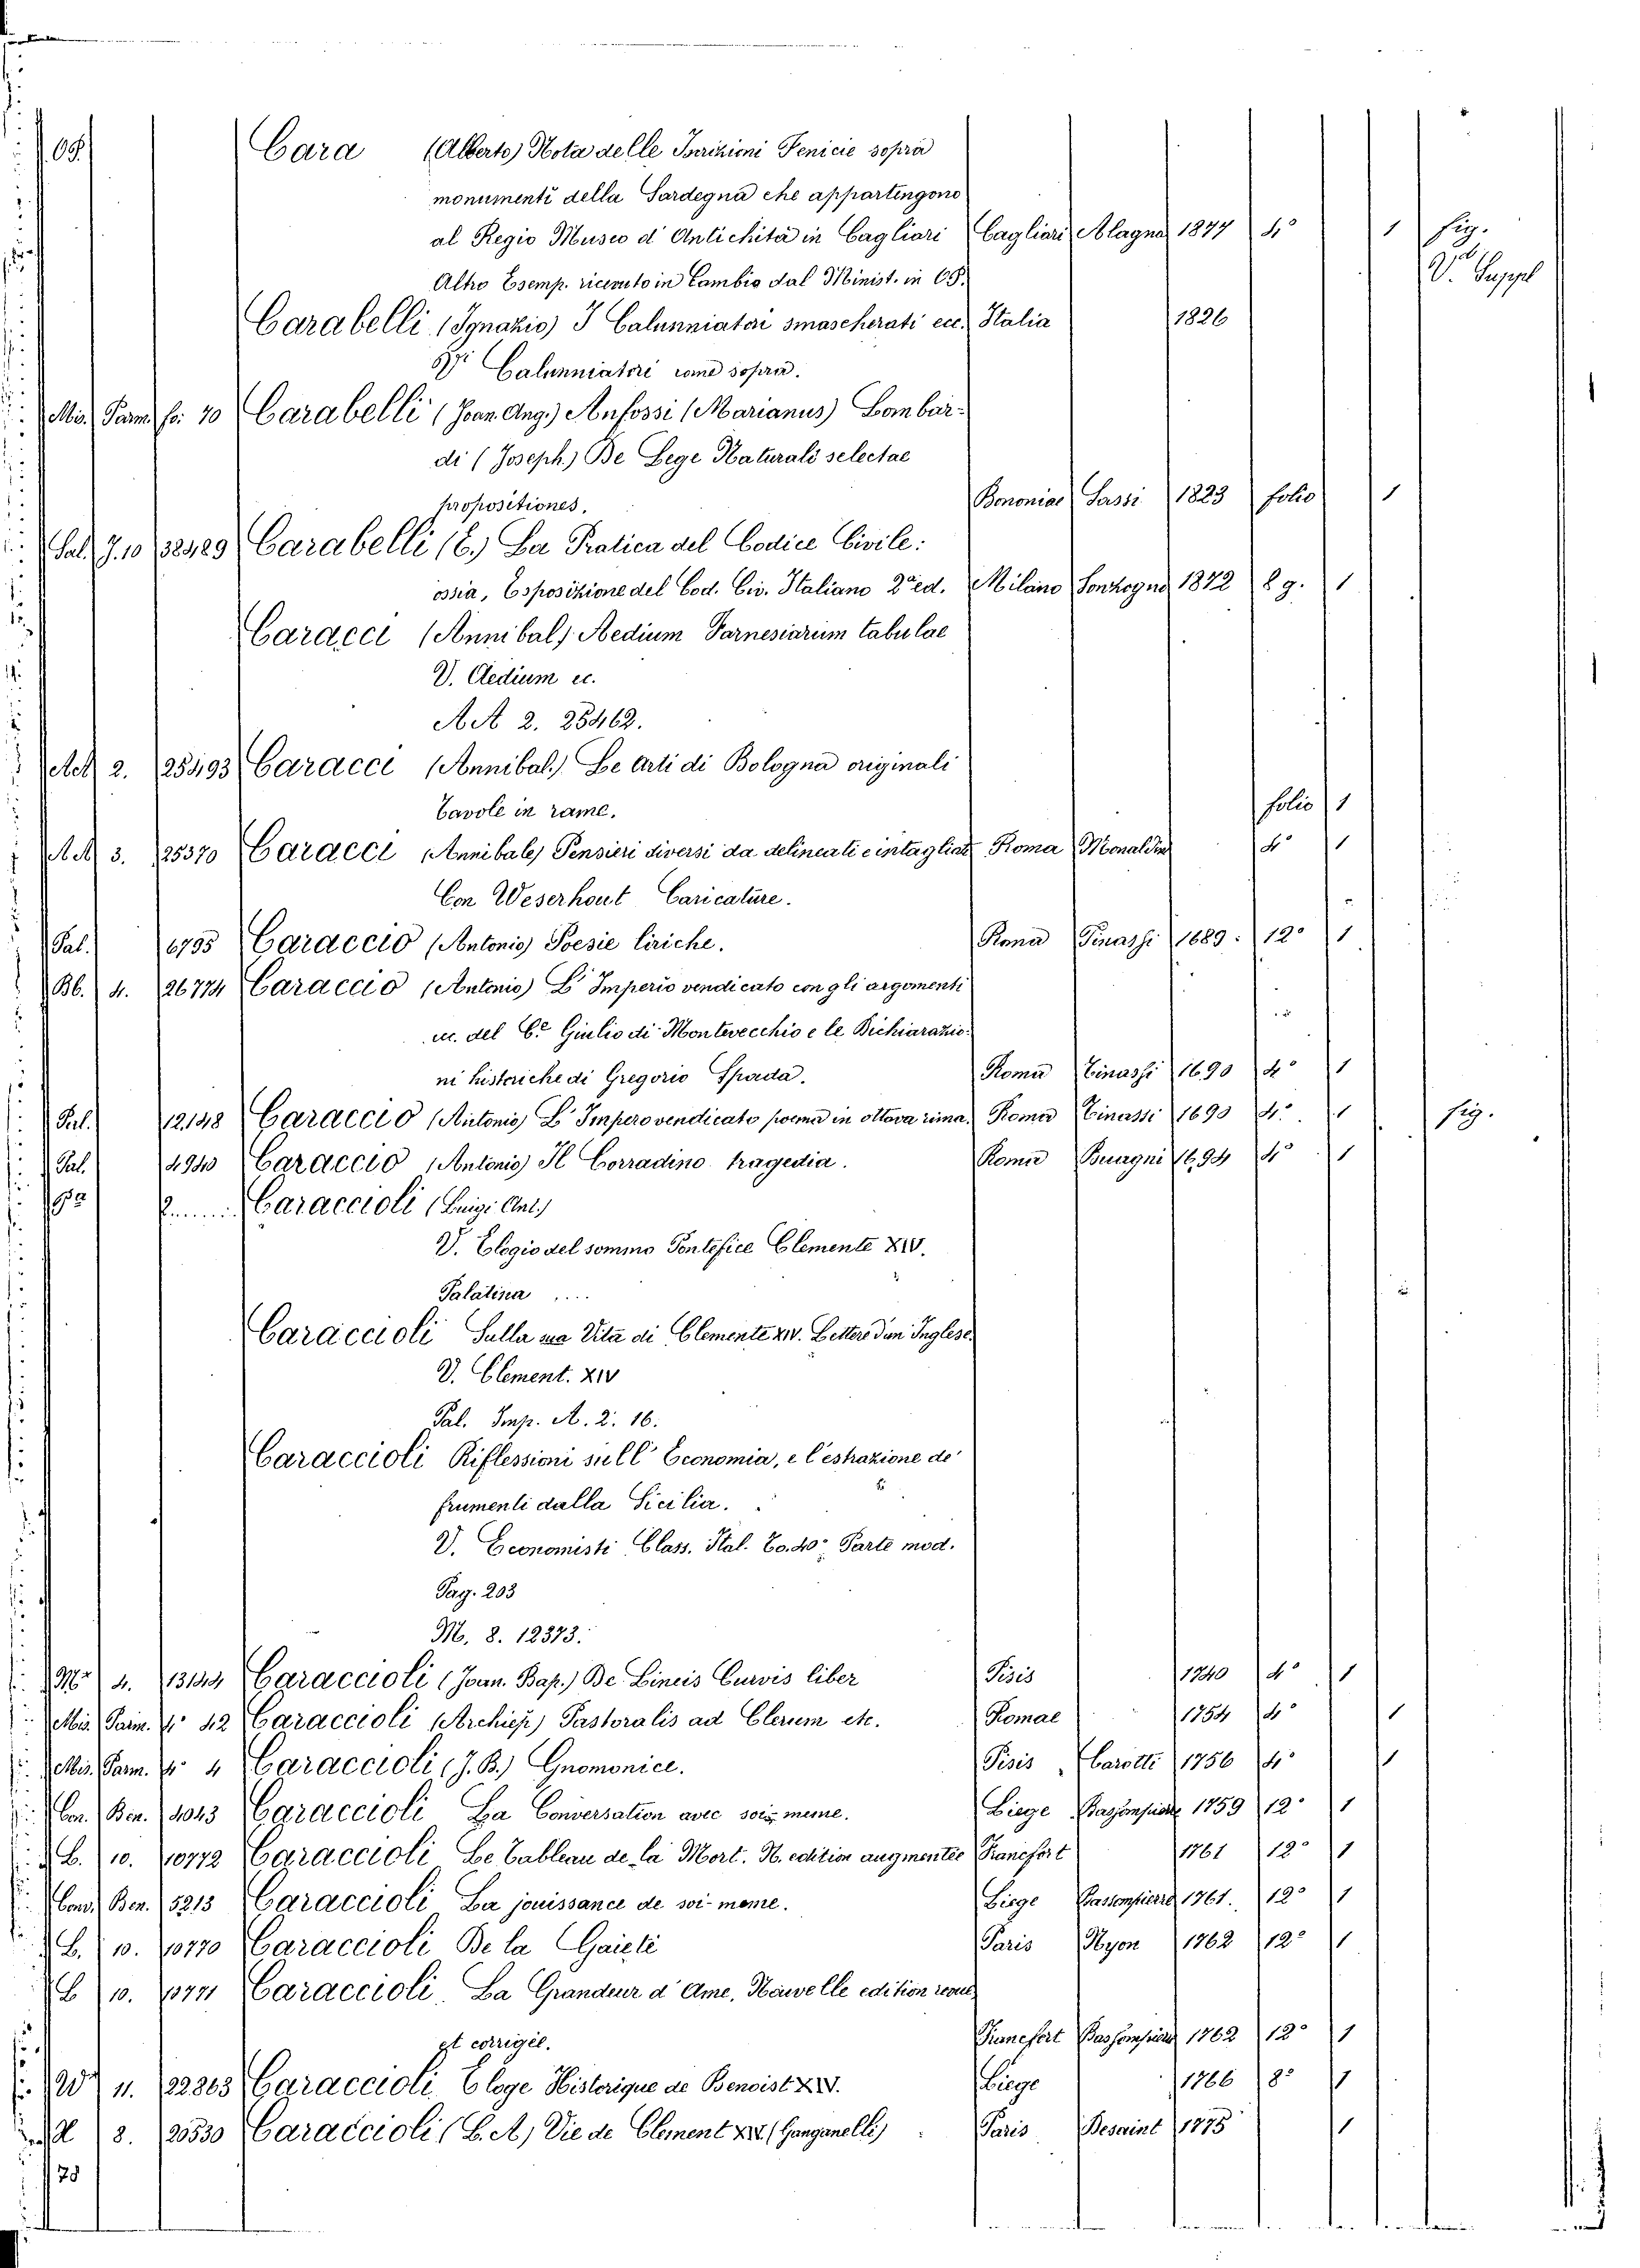 Cara (Alberto) Nota delle Iscrizioni Fenicie sopra
monumenti della Sardegna che appartengono
al Regio Museo d'Antichità in Cagliari Cagliari Alagna 1877 4° 1 fig.
Altro Esemp. ricevuto in Cambio dal Minist. in 68. V. Suppl
Carabelli (Ignazio) I Calunniatori smascherati ecc. Italia 1826
Calunniatori come sopra.
Mis. Parm. fo. 70 Carabelli (Joan. Ang.) Anfossi (Marianus) Lombar-
di (Joseph.) De Lege Naturali selectae
propositiones. Bononiae Sassi 1823 folio 1
Sal. J. 10 32429 Carabelli (C.) La Pratica del Codice Civile:
ossia, Esposizione del Cod. Civ. Italiano 2a ed. Milano Sonzogno 1872 8 g. 1
Caracci (Annibal) Aedium Farnesiarum tabulae
V. Aedium ec.
AA 2. 25462.
AA 2. 25493 Caracci (Annibal.) Le Arti di Bologna originali
Tavole in rame. folio 1
AA 3. 25370 Caracci (Annibale) Pensieri diversi da delineati e intagliati Roma Monaldini 4° 1
Con Weserhout Caricature.
Pal. 6795 Caraccio (Antonio) Poesie liriche. Roma Tinassi 1689. 12° 1
Bb. 4. 26774 Caraccio (Antonio) L'Imperio vendicato con gli argomenti
ec. del C.e Giulio di Montevecchio e le Dichiarazio-
ni historiche di Gregorio Spada. Roma Tinassi 1690 4° 1
Pal. 12148 Caraccio (Antonio) L'Impero vendicato poema in ottava rima. Roma Tinassi 1690 4° 1 fig.
Pal. 4940 Caraccio (Antonio) Il Corradino tragedia. Roma Buagni 1694 4° 1
Caraccioli (Luigi Ant.)
V. Elogio del sommo Pontefice Clemente XIV.
Palatina ....
Caraccioli Sulla Vita di Clemente XIV. Lettere d'un Inglese
V. Clement. XIV
Pal. Imp. A. 2. 16.
Caraccioli Riflessioni sull'Economia, e l'estrazione de'
frumenti dalla Sicilia.
V. Economisti Class. Ital. To. 40° Parte mod.
Pag. 203
M. 8. 12373.
4. 13144 Caraccioli (Joan. Bap.) De Lineis Curvis liber Pisis 1740 4° 1
Mis. Parm. 4° 42 Caraccioli (Archiep.) Pastoralis ad Clerum etc. Romae 1754 4° 1
Mis. Parm. 4° 4 Caraccioli (J. B.) Gnomonice. Pisis Carotti 1756 4° 1
Con. Ben. 4043 Caraccioli La Conversation avec soi-meme. Liege Bassompierre 1759 12° 1
B. 10. 10772 Caraccioli Le Tableau de la Mort. N. edition augmentée Francfort 1761 12° 1
Cond. Ben. 5213 Caraccioli La jouissance de soi-meme. Liege Bassompierre 1761. 12° 1
B. 10. 10770 Caraccioli De la Gaieté Paris Nyon 1762 12° 1
B 10. 10771 Caraccioli La Grandeur d'Ame. Nouvelle edition revue
et corrigée. Francfort Bassompierre 1762 12° 1
W 11. 22863 Caraccioli Eloge Historique de Benoist XIV. Liege 1766 8° 1
8. 20530 Caraccioli (L. A.) Vie de Clement XIV (Ganganelli) Paris Desaint 1775 1